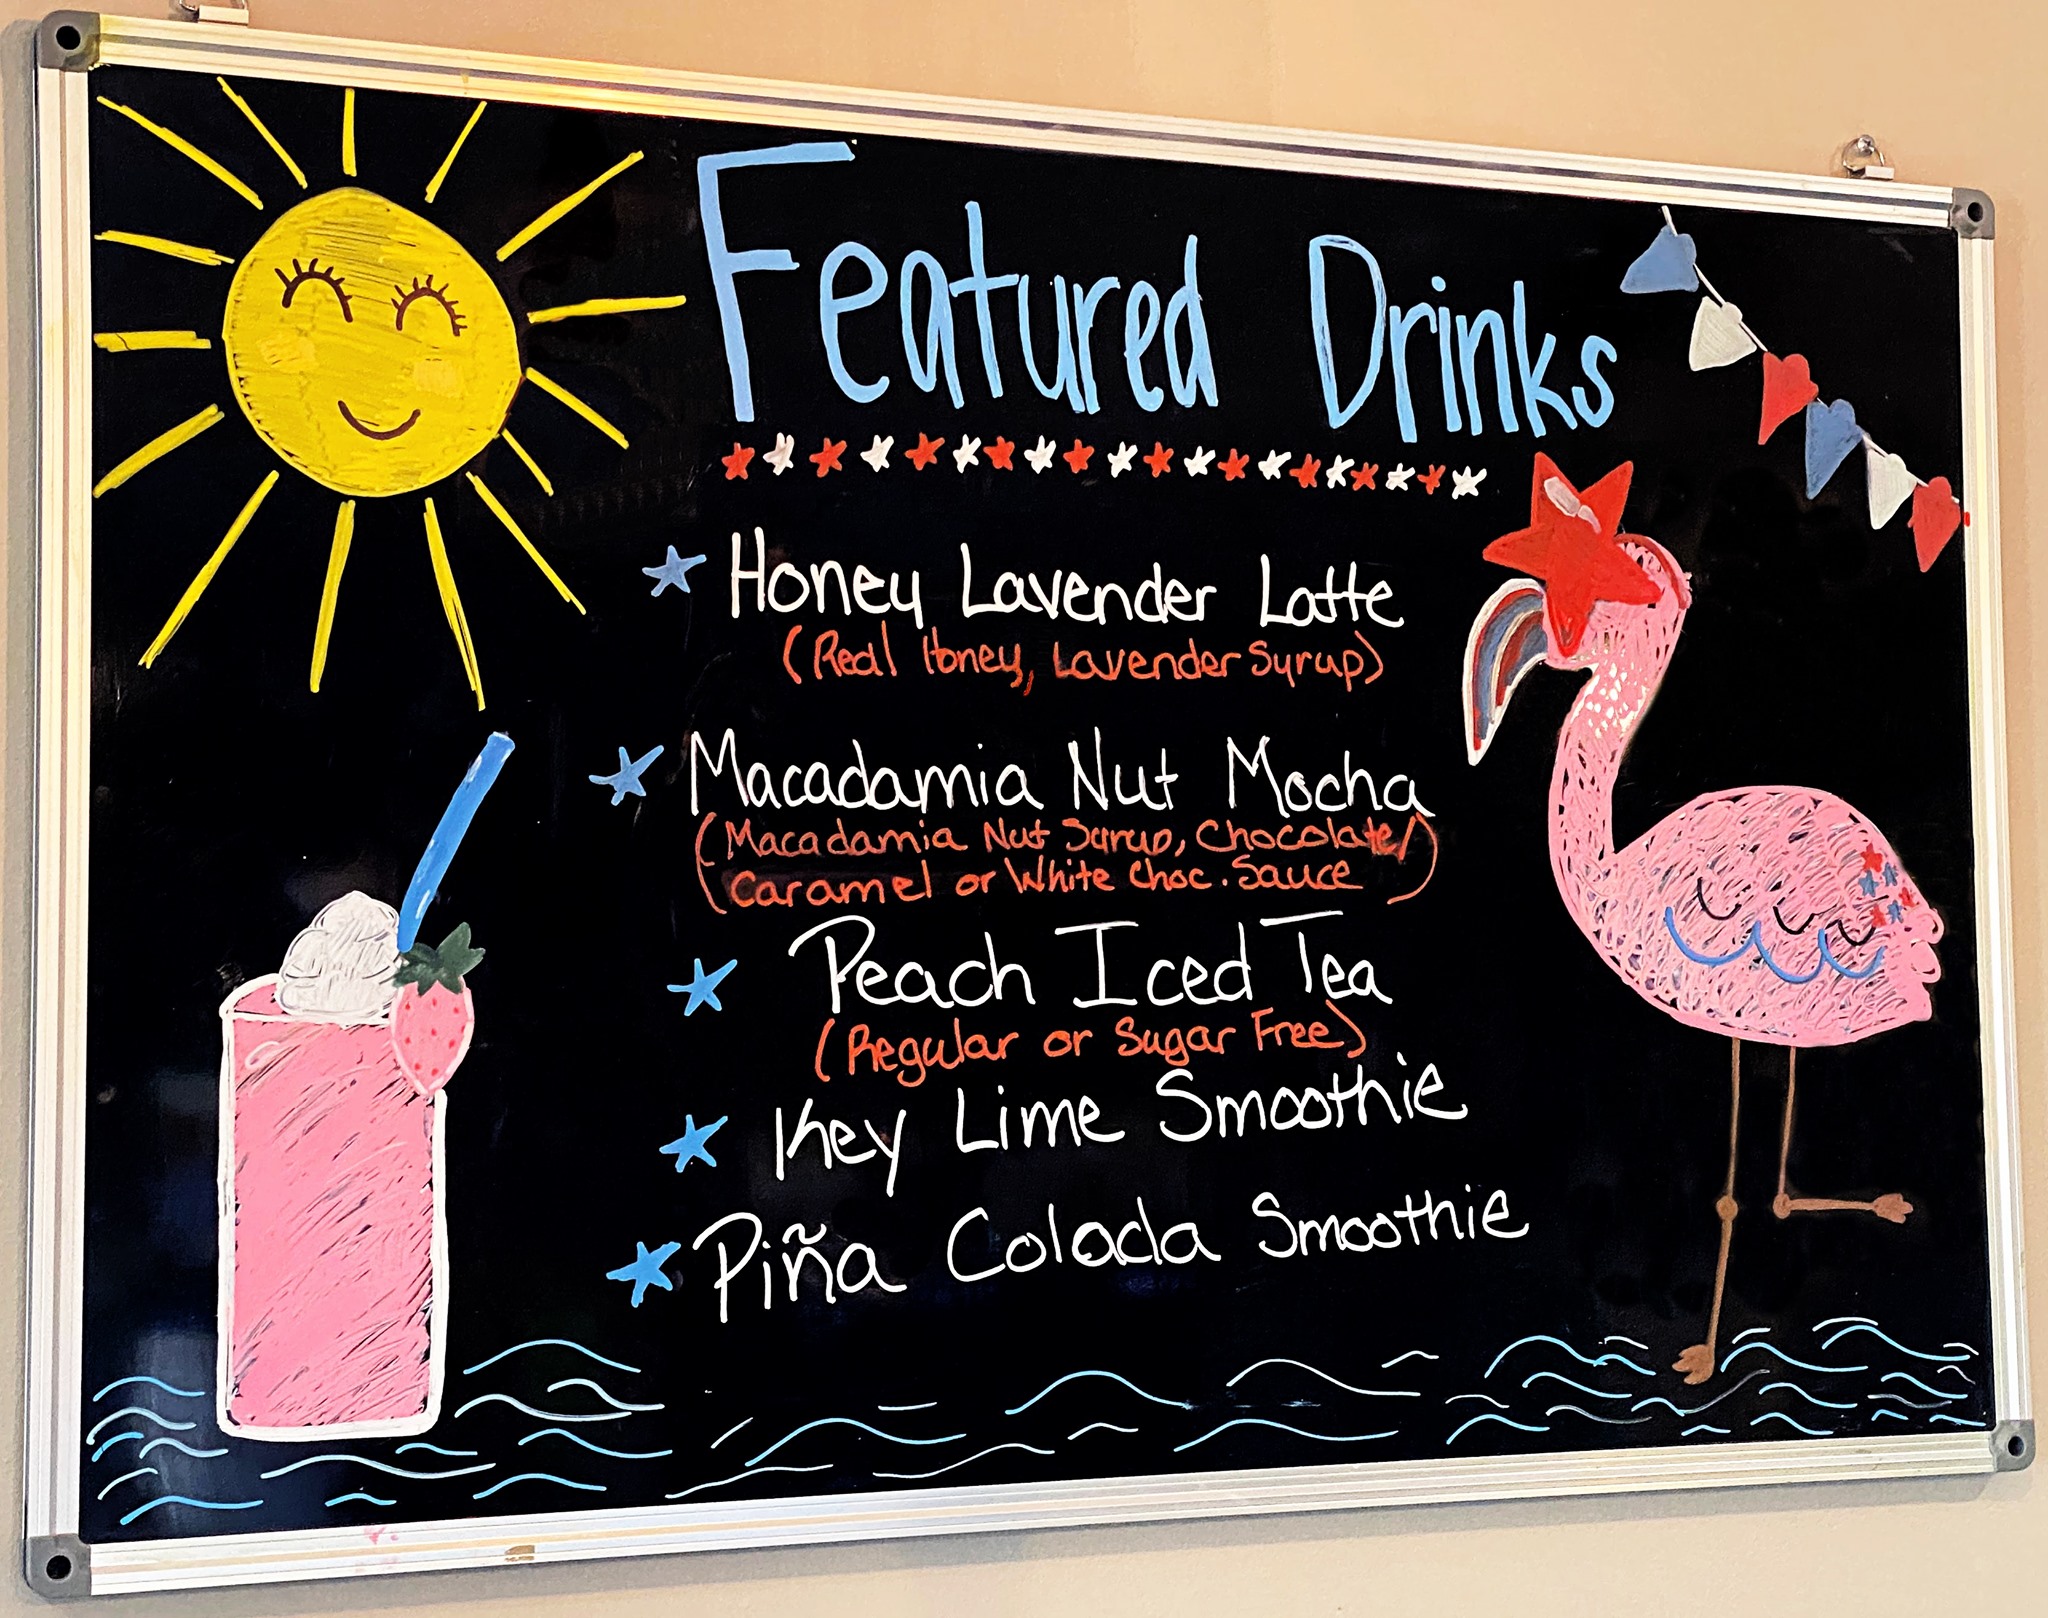 Featured Drinks
Honey Lavender Latte
(Real Honey, Lavender Syrup)
Macadamia Nut Mocha
(Macadamia Nut Syrup, Chocolate/
Caramel or White Choc. Sauce)
Peach Iced Tea
(Regular or Sugar Free)
Key Lime Smoothie
Piña Colada Smoothie